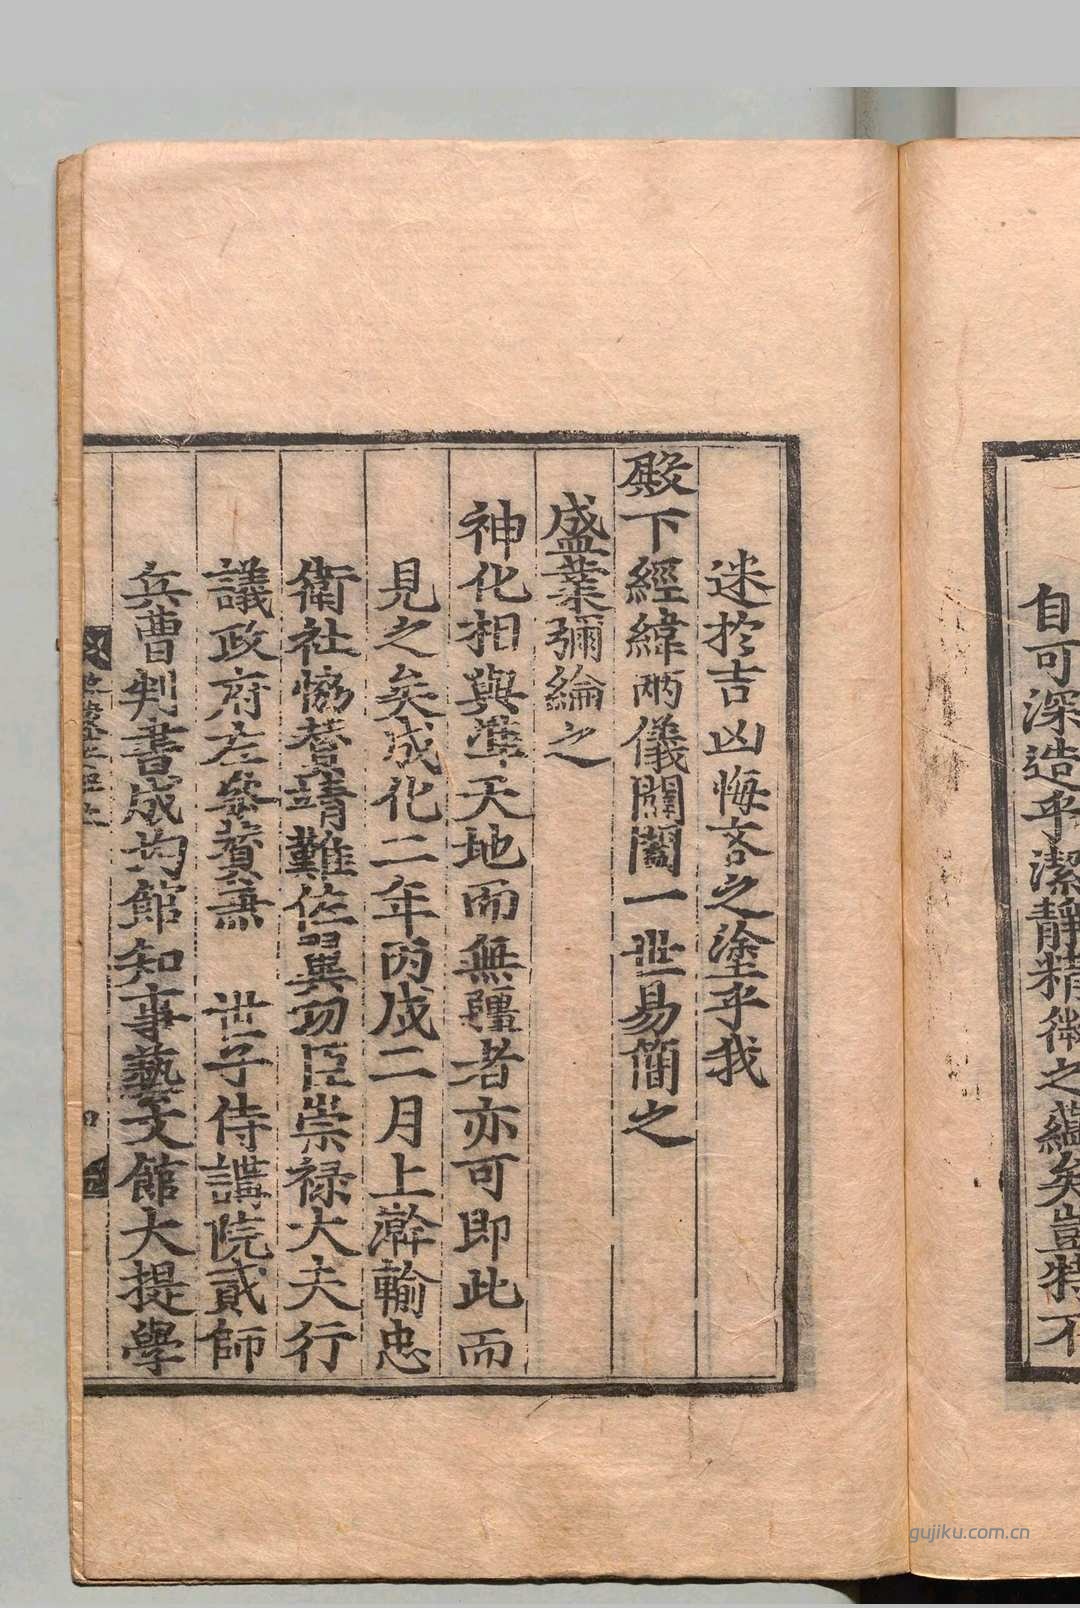 自可深造乎潔靜精微之蘊矣豈特不
迷於吉凶悔吝之塗乎我
殿下經緯兩儀闔闢一世易簡之
盛業彌綸之
神化相與準天地而無疆者亦可即此而
見之矣成化二年丙戌二月上澣輸忠
衛社協贊靖難佐翼功臣崇祿大夫行
議政府左參贊兼 世子侍講院貳師
兵曹判書成均館知事藝文館大提學
gujiku.com.cn